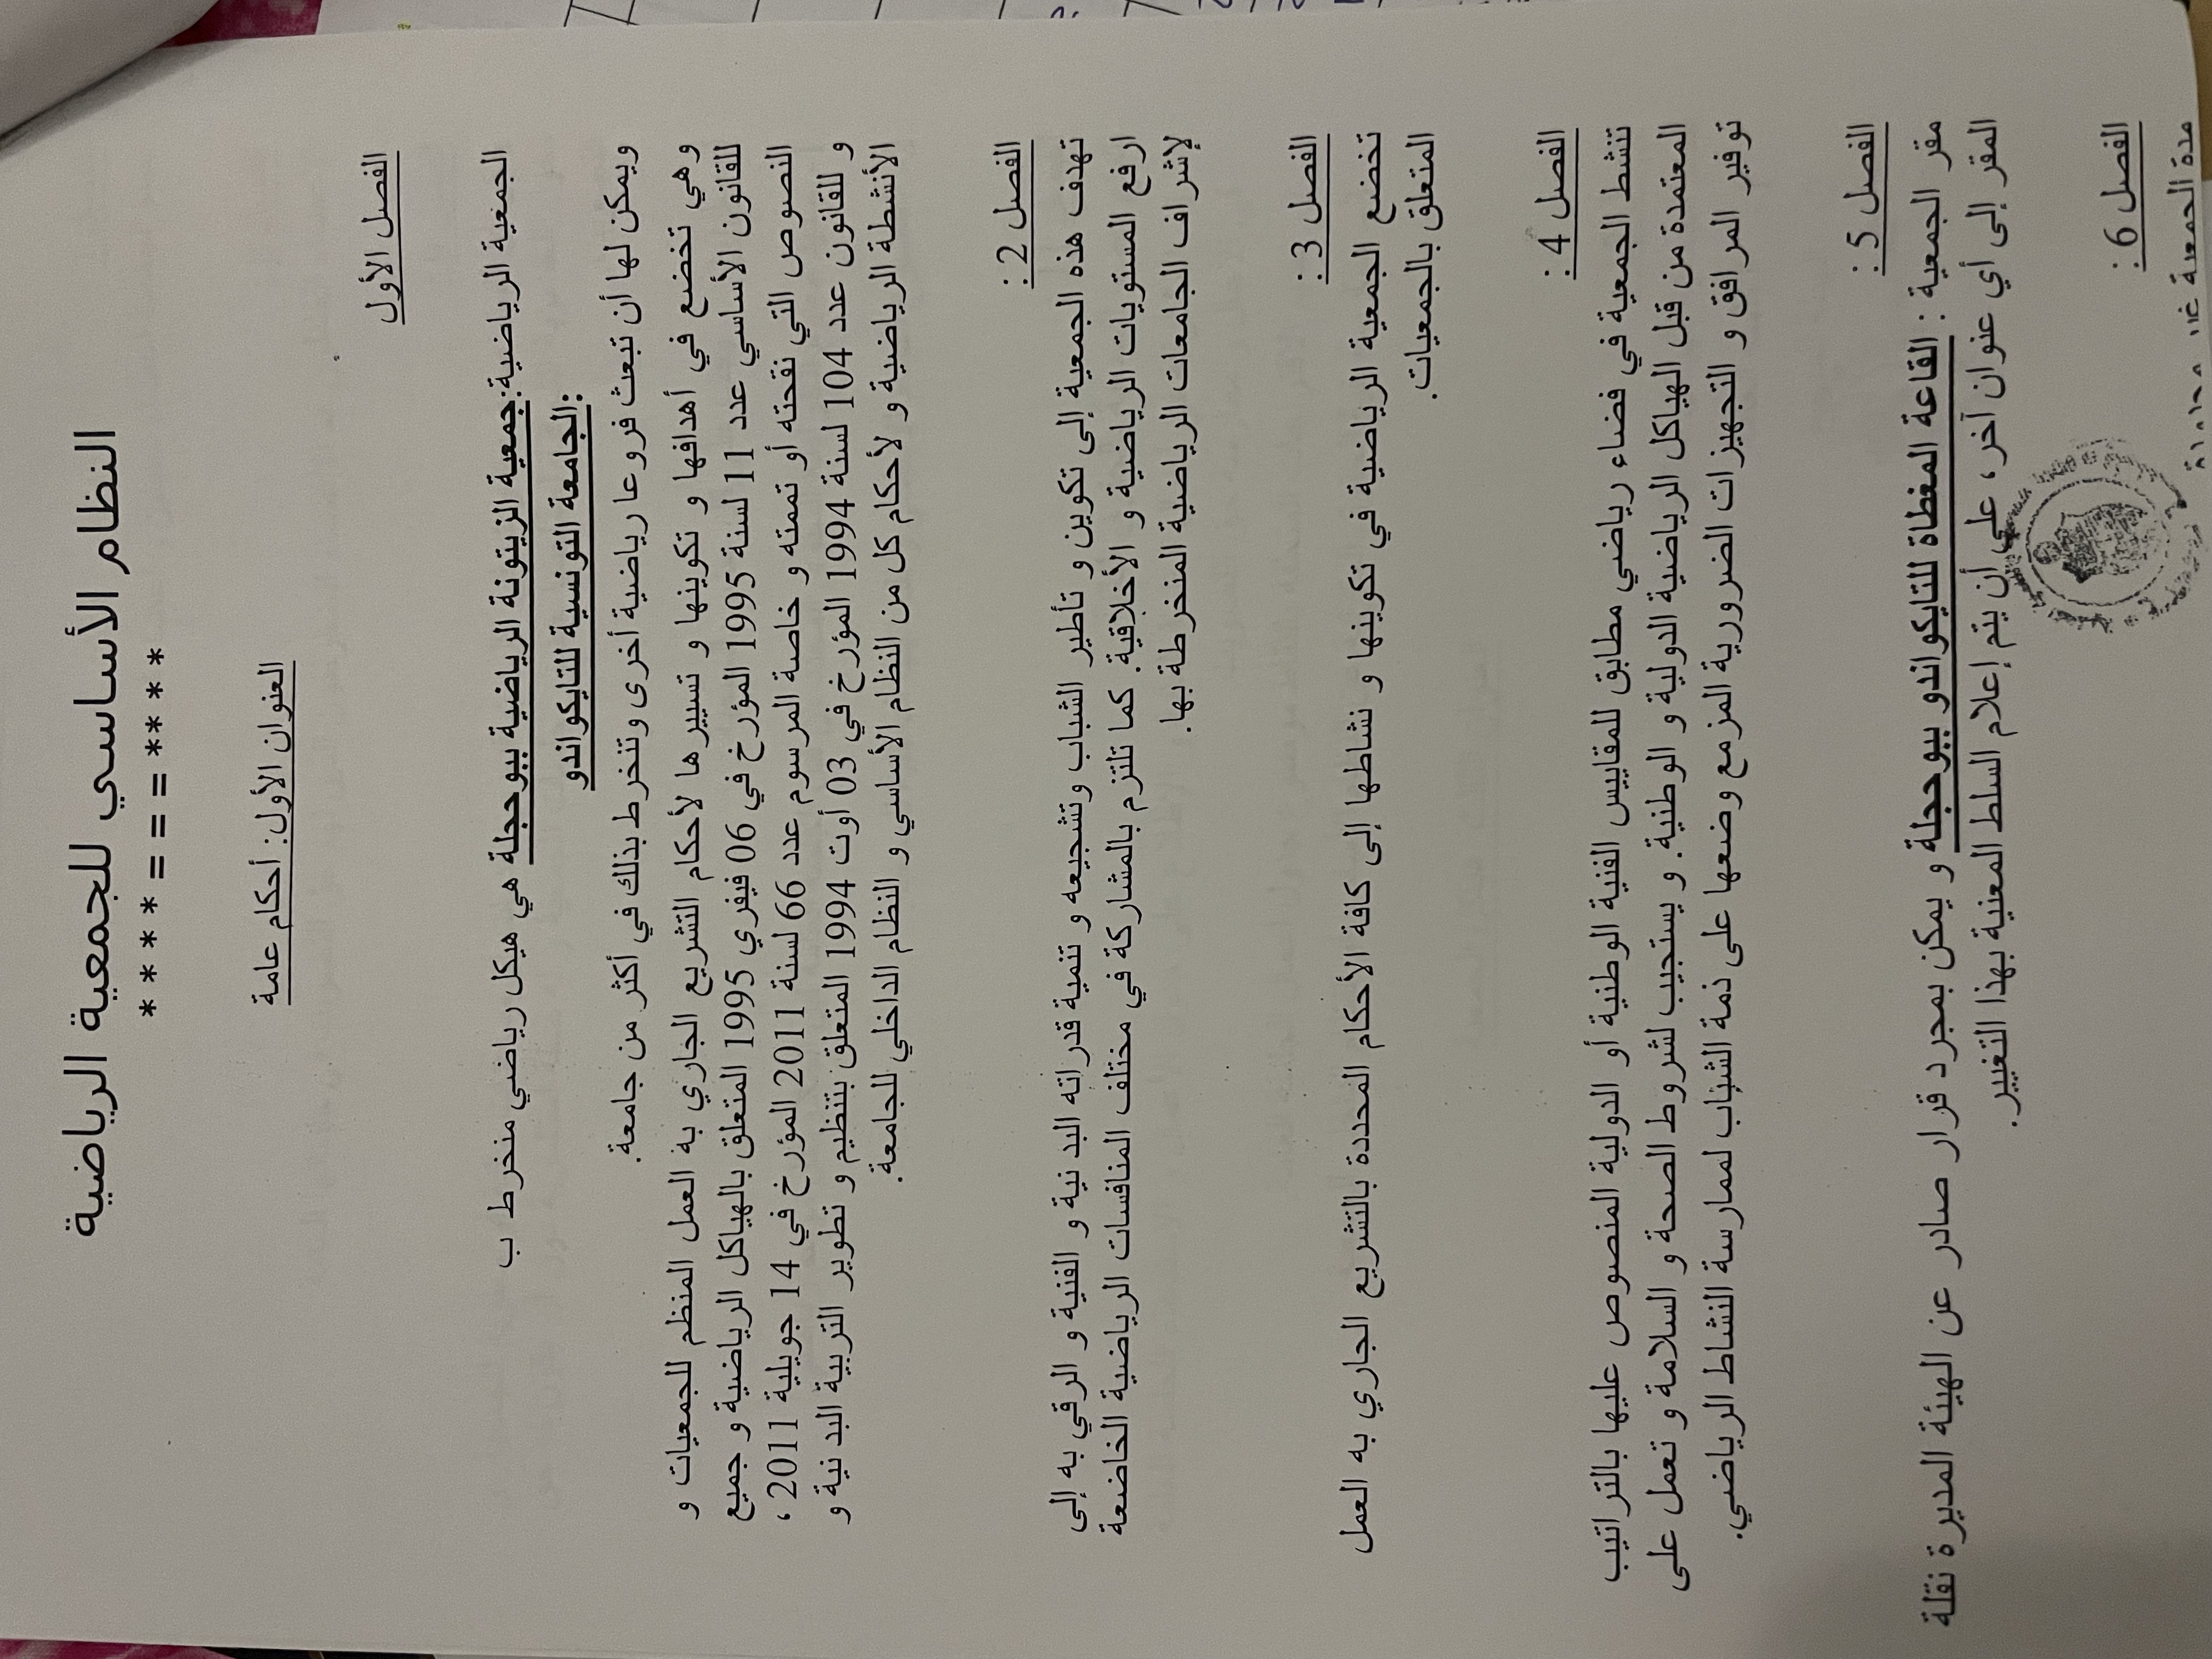 النظام الأساسي للجمعية الرياضية
* * * * = = = ** * * *
العنوان الأول: أحكام عامة
الفصل الأول
الجمعية الرياضية: جمعية الزيتونة الرياضية ببوحجلة هي هيكل رياضي منخرط ب
الجامعة التونسية للتايكواندو:
ويمكن لها أن تبعث فروعا رياضية أخرى وتنخرط بذلك في أكثر من جامعة.
وهي تخضع في أهدافها و تكوينها و تسييرها لأحكام التشريع الجاري به العمل المنظم للجمعيات و
للقانون الأساسي عدد 11 لسنة 1995 المؤرخ في 06 فيفري 1995 المتعلق بالهياكل الرياضية و جميع
النصوص التي نقحته أو تممته و خاصة المرسوم عدد 66 لسنة 2011 المؤرخ في 14 جويلية 2011 ،
و للقانون عدد 104 لسنة 1994 المؤرخ في 03 أوت 1994 المتعلق بتنظيم و تطوير التربية البدنية و
الأنشطة الرياضية و لأحكام كل من النظام الأساسي و النظام الداخلي للجامعة.
الفصل 2 :
تهدف هذه الجمعية إلى تكوين و تأطير الشباب وتشجيعه و تنمية قدراته البدنية و الفنية و الرقي به إلى
ارفع المستويات الرياضية و الأخلاقية. كما تلتزم بالمشاركة في مختلف المنافسات الرياضية الخاضعة
لإشراف الجامعات الرياضية المنخرطة بها.
الفصل 3 :
تخضع الجمعية الرياضية في تكوينها و نشاطها إلى كافة الأحكام المحددة بالتشريع الجاري به العمل
المتعلق بالجمعيات.
الفصل 4 :
تنشط الجمعية في فضاء رياضي مطابق للمقاييس الفنية الوطنية أو الدولية المنصوص عليها بالتراتيب
المعتمدة من قبل الهياكل الرياضية الدولية و الوطنية. و يستجيب لشروط الصحة و السلامة و تعمل على
توفير المرافق و التجهيزات الضرورية المزمع وضعها على ذمة الشباب لممارسة النشاط الرياضي.
الفصل 5 :
مقر الجمعية : القاعة المغطاة للتايكواندو ببوحجلة و يمكن بمجرد قرار صادر عن الهيئة المديرة نقلة
المقر إلى أي عنوان آخر، على أن يتم إعلام السلط المعنية بهذا التغيير.
الفصل 6 :
مدة الجمعية غير محدودة